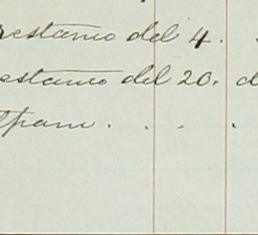 restamo del 4.
estamo del 20. d